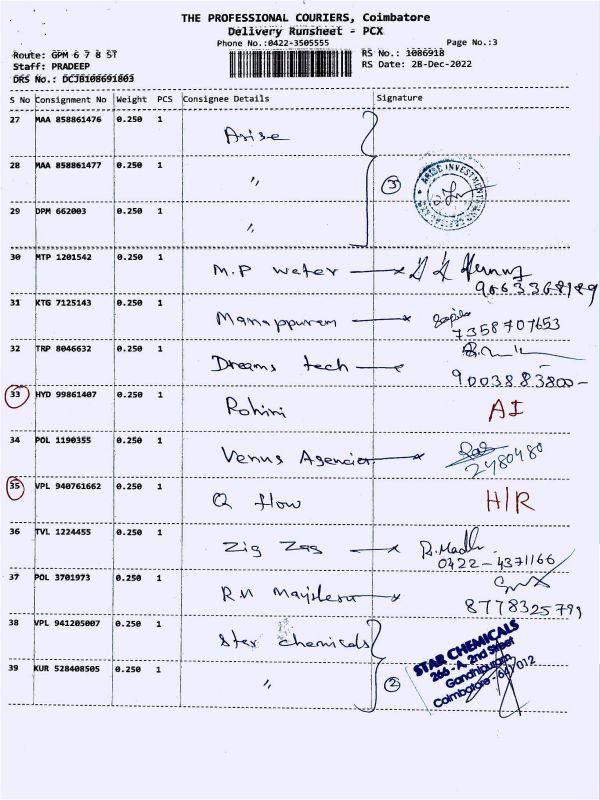 THE PROFESSIONAL COURIERS, Coimbatore
Delivery Runsheet - PCX
Phone No.:0422-3505555 Page No.:3
Route: GPM 6 7 8 ST RS No.: 1086918
Staff: PRADEEP RS Date: 28-Dec-2022
DRS No.: DCJB1086691803
S No Consignment No Weight PCS Consignee Details Signature
27 MAA 858861476 0.250 1 Arise
28 MAA 858861477 0.250 1 " 3 ARISE INVESTMENT
29 DPM 662003 0.250 1 "
30 MTP 1201542 0.250 1 M.P water
9063368189
31 KTG 7125143 0.250 1 Manappuram
7358707653
32 TRP 8046632 0.250 1 Dreams tech
9003883800-
33 HYD 99861407 0.250 1 Rohini AI
34 POL 1190355 0.250 1 Venus Agencies
2480480
35 VPL 940761662 0.250 1 Q flow H/R
36 TVL 1224455 0.250 1 Zig Zag R.Madh
0422-4371166
37 POL 3701973 0.250 1 R.M
8778325799
38 VPL 941205007 0.250 1 Star chemicals
39 KUR 528408505 0.250 1 " 2
STAR CHEMICALS
266 - A, 2nd Street
Gandhipuram
Coimbatore - 641 012